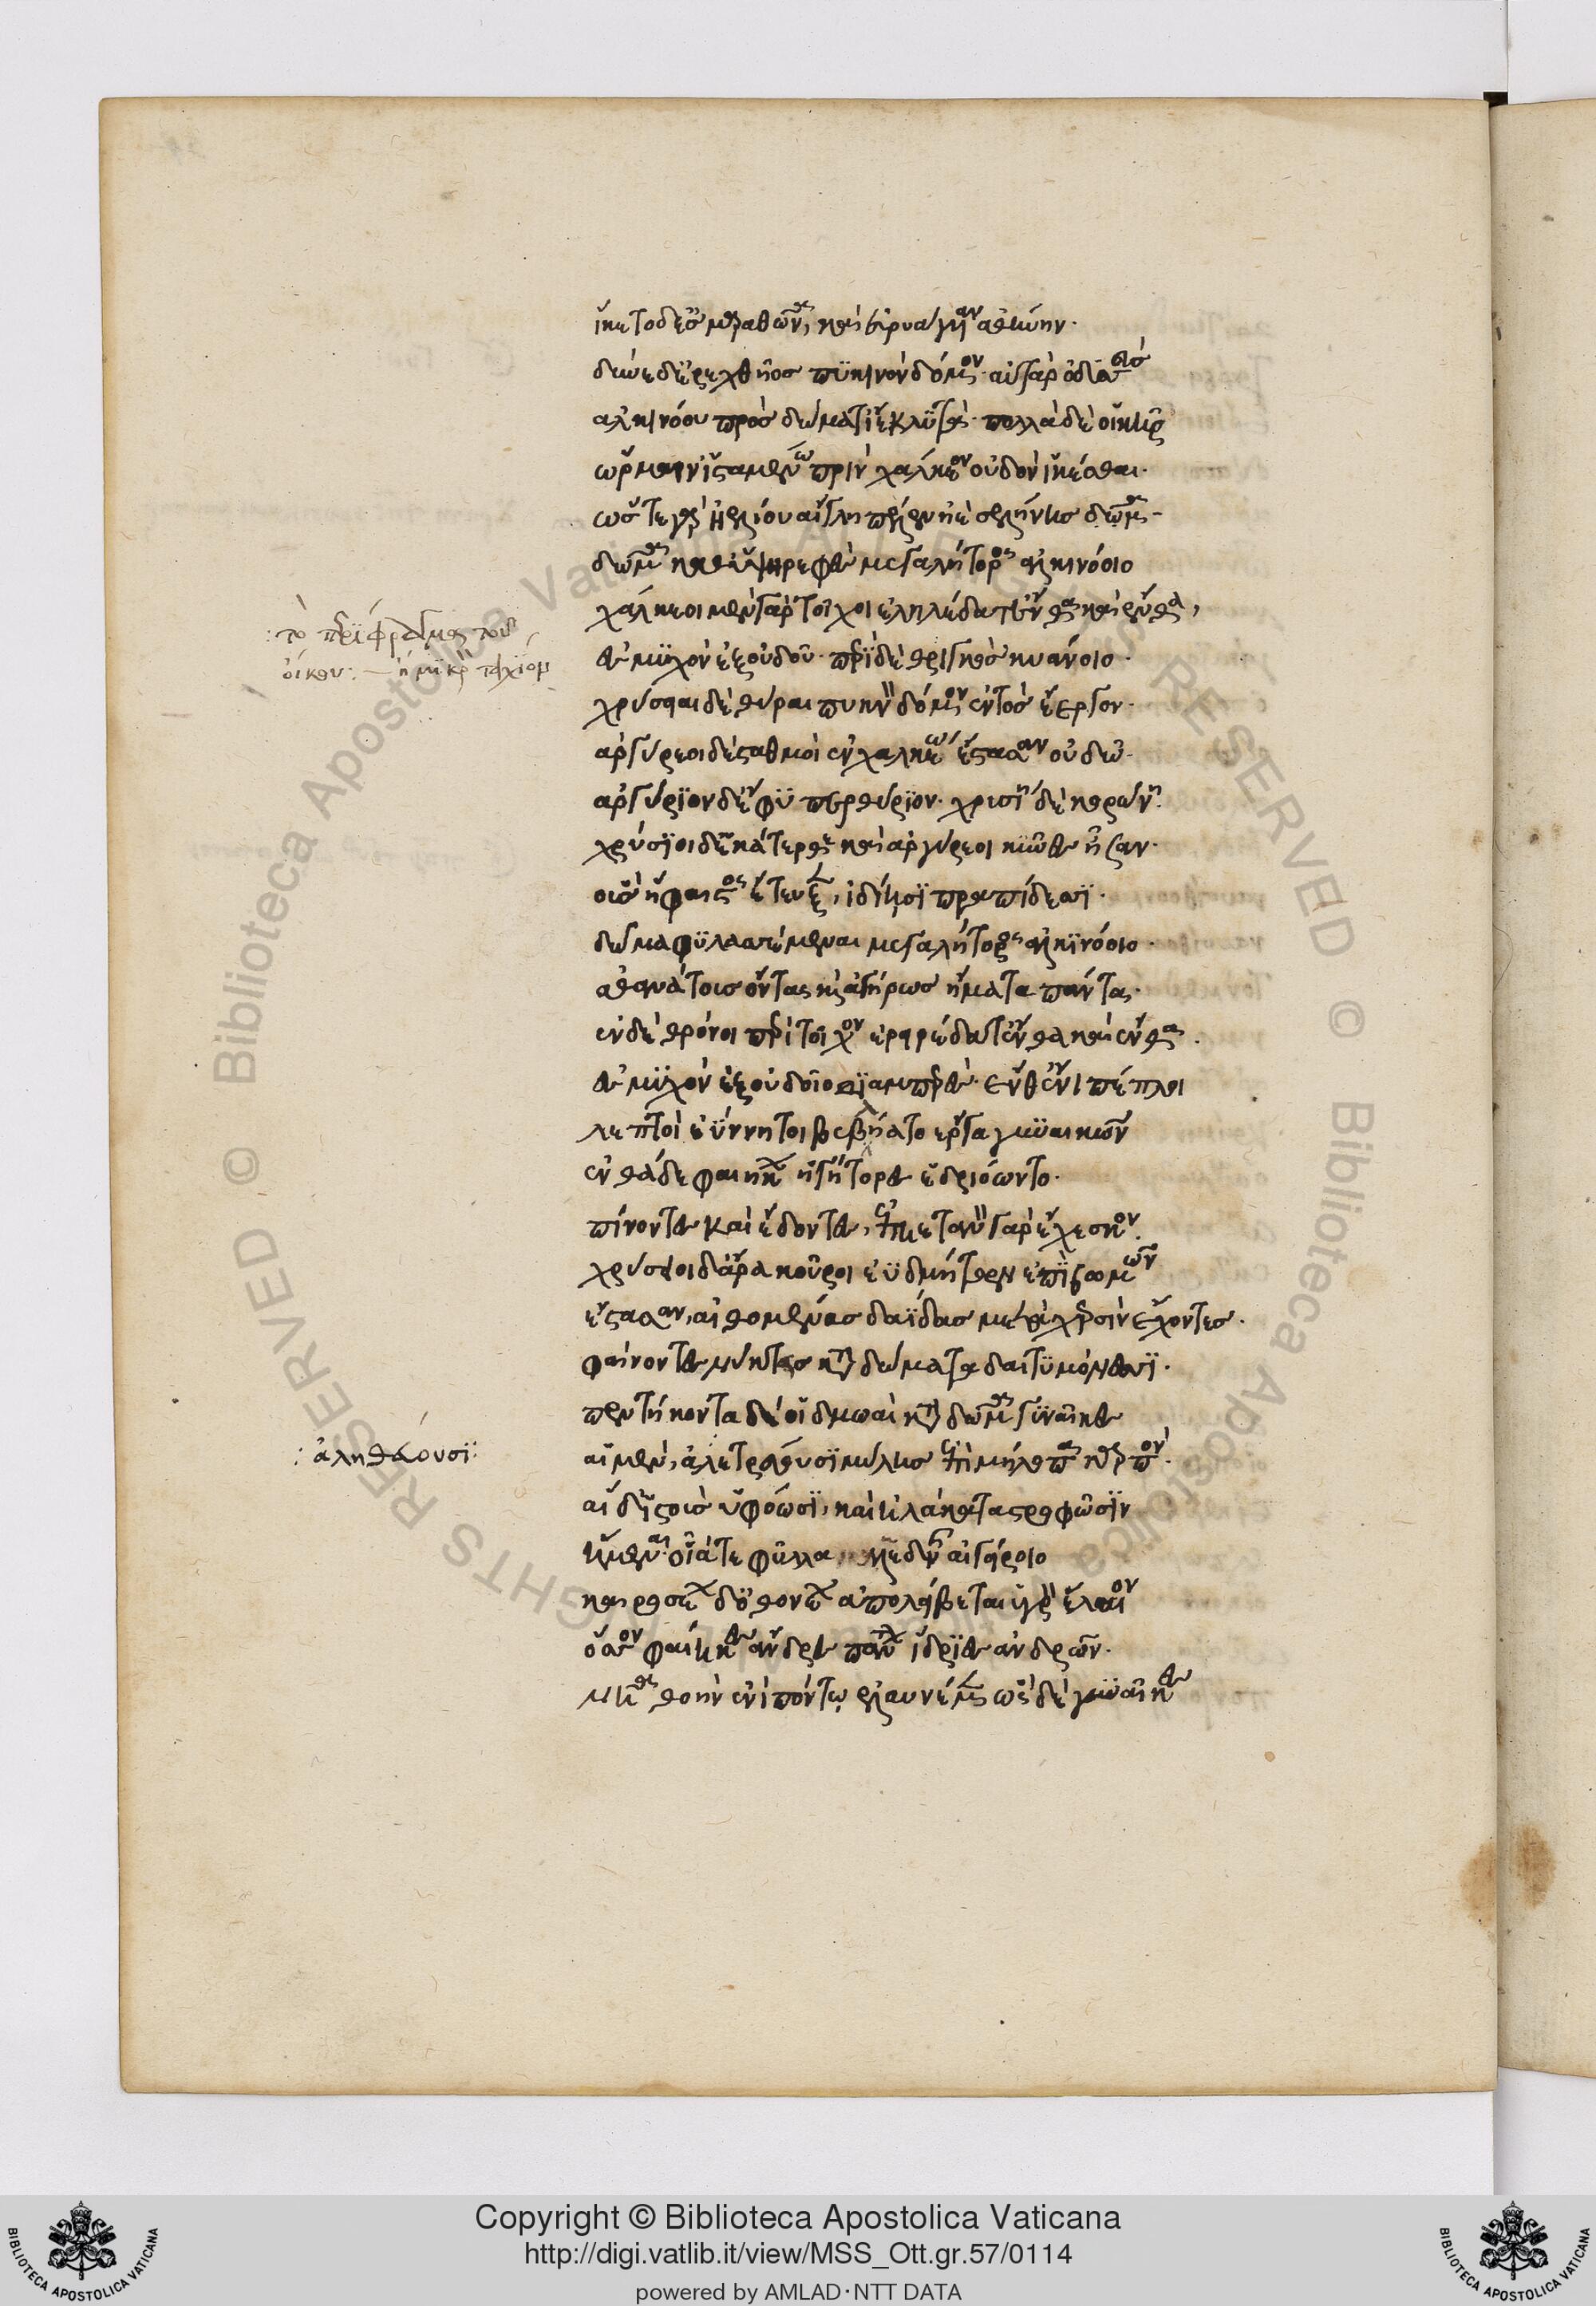 ἵκετο δ' ἐς μαραθῶνα, καὶ εὐρυάγυιαν ἀθήνην·
δῦνε δ' ἐρεχθῆος πυκινὸν δόμον· αὐτὰρ ὀδυσσεὺς
ἀλκινόου πρὸς δώματ' ἴε κλυτά· πολλὰ δέ οἱ κῆρ
ὥρμαιν' ἱσταμένω πρὶν χάλκεον οὐδὸν ἱκέσθαι·
ὥς τε γὰρ ἠελίου αἴγλη πέλεν ἠὲ σελήνης δῶμα·
δῶμα καθ' ὑψηρεφὲς μεγαλήτορος ἀλκινόοιο
χάλκεοι μὲν γὰρ τοῖχοι ἐληλέδατ' ἔνθα καὶ ἔνθα,
τὸ περίφραγμα τοῦ
ἐς μυχὸν ἐξ οὐδοῦ· περὶ δὲ θριγκὸς κυάνοιο·
οἴκου: — ἢ μικρὸν τειχίον
χρύσεαι δὲ θύραι πυκινὸν δόμον ἐντὸς ἔεργον·
ἀργύρεοι δὲ σταθμοὶ ἐν χαλκέω ἕστασαν οὐδῶ·
ἀργύριον δ' ἐφ' ὑπερθύριον· χρυσῆ δὲ κορώνη·
χρύσιοι δ' ἑκάτερθε καὶ ἀργύρεοι κύνες ἦσαν·
οὓς ἥφαιστος ἔτευξεν, ἰδυίησι πραπίδεσι·
δῶμα φυλασσέμεναι μεγαλήτορος ἀλκινόοιο·
ἀθανάτους ὄντας καὶ ἀγήρως ἤματα πάντα·
ἐν δὲ θρόνοι περὶ τοῖχον ἐρηρέδατ' ἔνθα καὶ ἔνθα·
ἐς μυχὸν ἐξ οὐδοῖο διαμπερές· ἔνθ' ἐνὶ πέπλοι
λεπτοὶ ἐύννητοι βεβλήατο ἔργα γυναικῶν
ἐνθάδε φαιήκων ἡγήτορες ἑδριόωντο·
πίνοντες καὶ ἔδοντες, ἐπηετανὸν γὰρ ἔχεσκον·
χρύσεοι δ' ἄρα κοῦροι ἐυδμήτων ἐπὶ βωμῶν
ἕστασαν, αἰθομένας δαΐδας μετὰ χερσὶν ἔχοντες·
φαίνοντες νύκτας κατὰ δώματα δαιτυμόνεσι·
πεντήκοντα δέ οἱ δμωαὶ κατὰ δῶμα γυναῖκες
αἱ μὲν, ἀλετρεύουσι μύλης ἐπὶ μήλοπα καρπόν·
ἀλήθουσι:
αἱ δ' ἱστοὺς ὑφόωσι, καὶ ἠλάκατα στροφῶσιν
ἥμεναι· οἷά τε φύλλα μακεδνῆς αἰγείροιο
καιροσέων δ' ὀθονέων ἀπολείβεται ὑγρὸν ἔλαιον
ὅσσον φαίηκες ἄνδρες πάντων ἴδριες ἀνδρῶν·
νῆα θοὴν ἐνὶ πόντῳ ἐλαυνέμεν, ὣς δὲ γυναῖκες
Copyright © Biblioteca Apostolica Vaticana
http://digi.vatlib.it/view/MSS_Ott.gr.57/0114
powered by AMLAD·NTT DATA